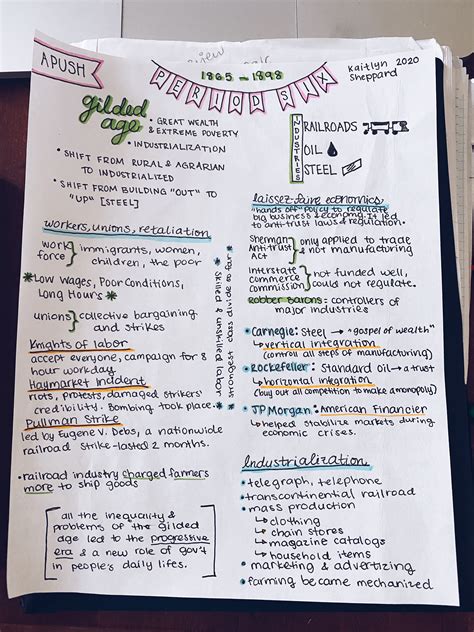 APUSH
PERIOD SIX
1865 - 1898
Kaitlyn 2020
Sheppard
gilded
age
• GREAT WEALTH
& EXTREME POVERTY
• INDUSTRIALIZATION
• SHIFT FROM RURAL & AGRARIAN
TO INDUSTRIALIZED
• SHIFT FROM BUILDING "OUT" TO
"UP" [STEEL]
INDUSTRIES
RAILROADS
OIL
STEEL
workers, unions, retaliation
work
force } immigrants, women,
children, the poor
*Low Wages, Poor Conditions,
Long Hours *
unions} collective bargaining
and strikes
Knights of labor
accept everyone, campaign for 8
hour workday
Haymarket Incident
riots, protests, damaged strikers'
credibility. Bombing took place.
Pullman Strike
led by Eugene V. Debs, a nationwide
railroad strike-lasted 2 months.
• railroad industry charged farmers
more to ship goods
all the inequality &
problems of the gilded
age led to the progressive
era & a new role of gov't
in people's daily lifes.
* Skilled & unskilled labor
strongest class divide so far *
laissez-faire economics
"hands off" policy to regulate
big business & economy. It led
to anti-trust laws & regulation.
Sherman
Anti-trust
Act } only applied to trade
& not manufacturing
Interstate
commerce
commission } not funded well,
could not regulate.
Robber Barons: controllers of
major industries
• Carnegie: Steel → "gospel of wealth"
↳ vertical integration
(control all steps of manufacturing)
• Rockefeller: Standard oil → a trust
↳ horizontal integration
(buy out all competition to make a monopoly)
• JP Morgan: American Financier
↳ helped stabilize markets during
economic crises.
Industrialization
• telegraph, telephone
• transcontinental railroad
• mass production
↳ clothing
↳ chain stores
↳ magazine catalogs
↳ household items
• marketing & advertizing
• farming became mechanized